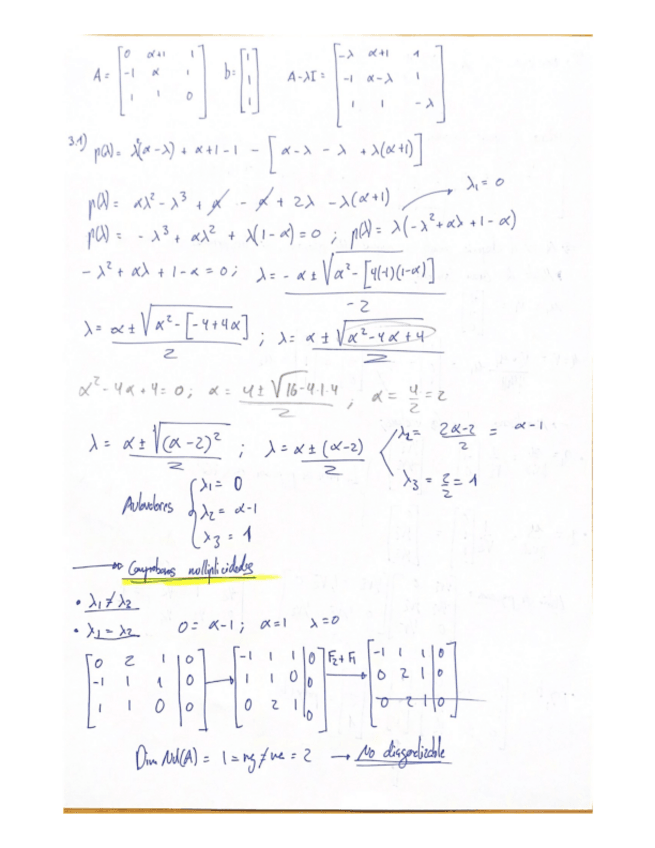 A = [0 α+1 1; -1 α 1; 1 1 0] b = [1; 1; 1] A-λI = [-λ α+1 1; -1 α-λ 1; 1 1 -λ]
3.1) p(λ) = λ²(α-λ) + α+1-1 - [α-λ - λ + λ(α+1)]
p(λ) = αλ² - λ³ + α - α + 2λ - λ(α+1) → λ₁ = 0
p(λ) = -λ³ + αλ² + λ(1-α) = 0 ; p(λ) = λ(-λ² + αλ + 1-α)
-λ² + αλ + 1-α = 0 ; λ = (-α ± √(α² - [4(-1)(1-α)])) / -2
λ = (α ± √(α² - [-4+4α])) / 2 ; λ = (α ± √(α² - 4α + 4)) / 2
α² - 4α + 4 = 0 ; α = (4 ± √(16-4·1·4)) / 2 ; α = 4/2 = 2
λ = (α ± √((α-2)²)) / 2 ; λ = (α ± (α-2)) / 2
λ₂ = (2α-2)/2 = α-1
λ₃ = 2/2 = 1
Autovalores { λ₁ = 0
λ₂ = α-1
λ₃ = 1
→ Comprobamos multiplicidades
• λ₁ ≠ λ₂
• λ₁ = λ₂ 0 = α-1 ; α=1 λ=0
[0 2 1 | 0; -1 1 1 | 0; 1 1 0 | 0] → [-1 1 1 | 0; 1 1 0 | 0; 0 2 1 | 0] F₂+F₁ → [-1 1 1 | 0; 0 2 1 | 0; 0 2 1 | 0]
Dim Nul(A) = 1 = mg ≠ ma = 2 → No diagonalizable